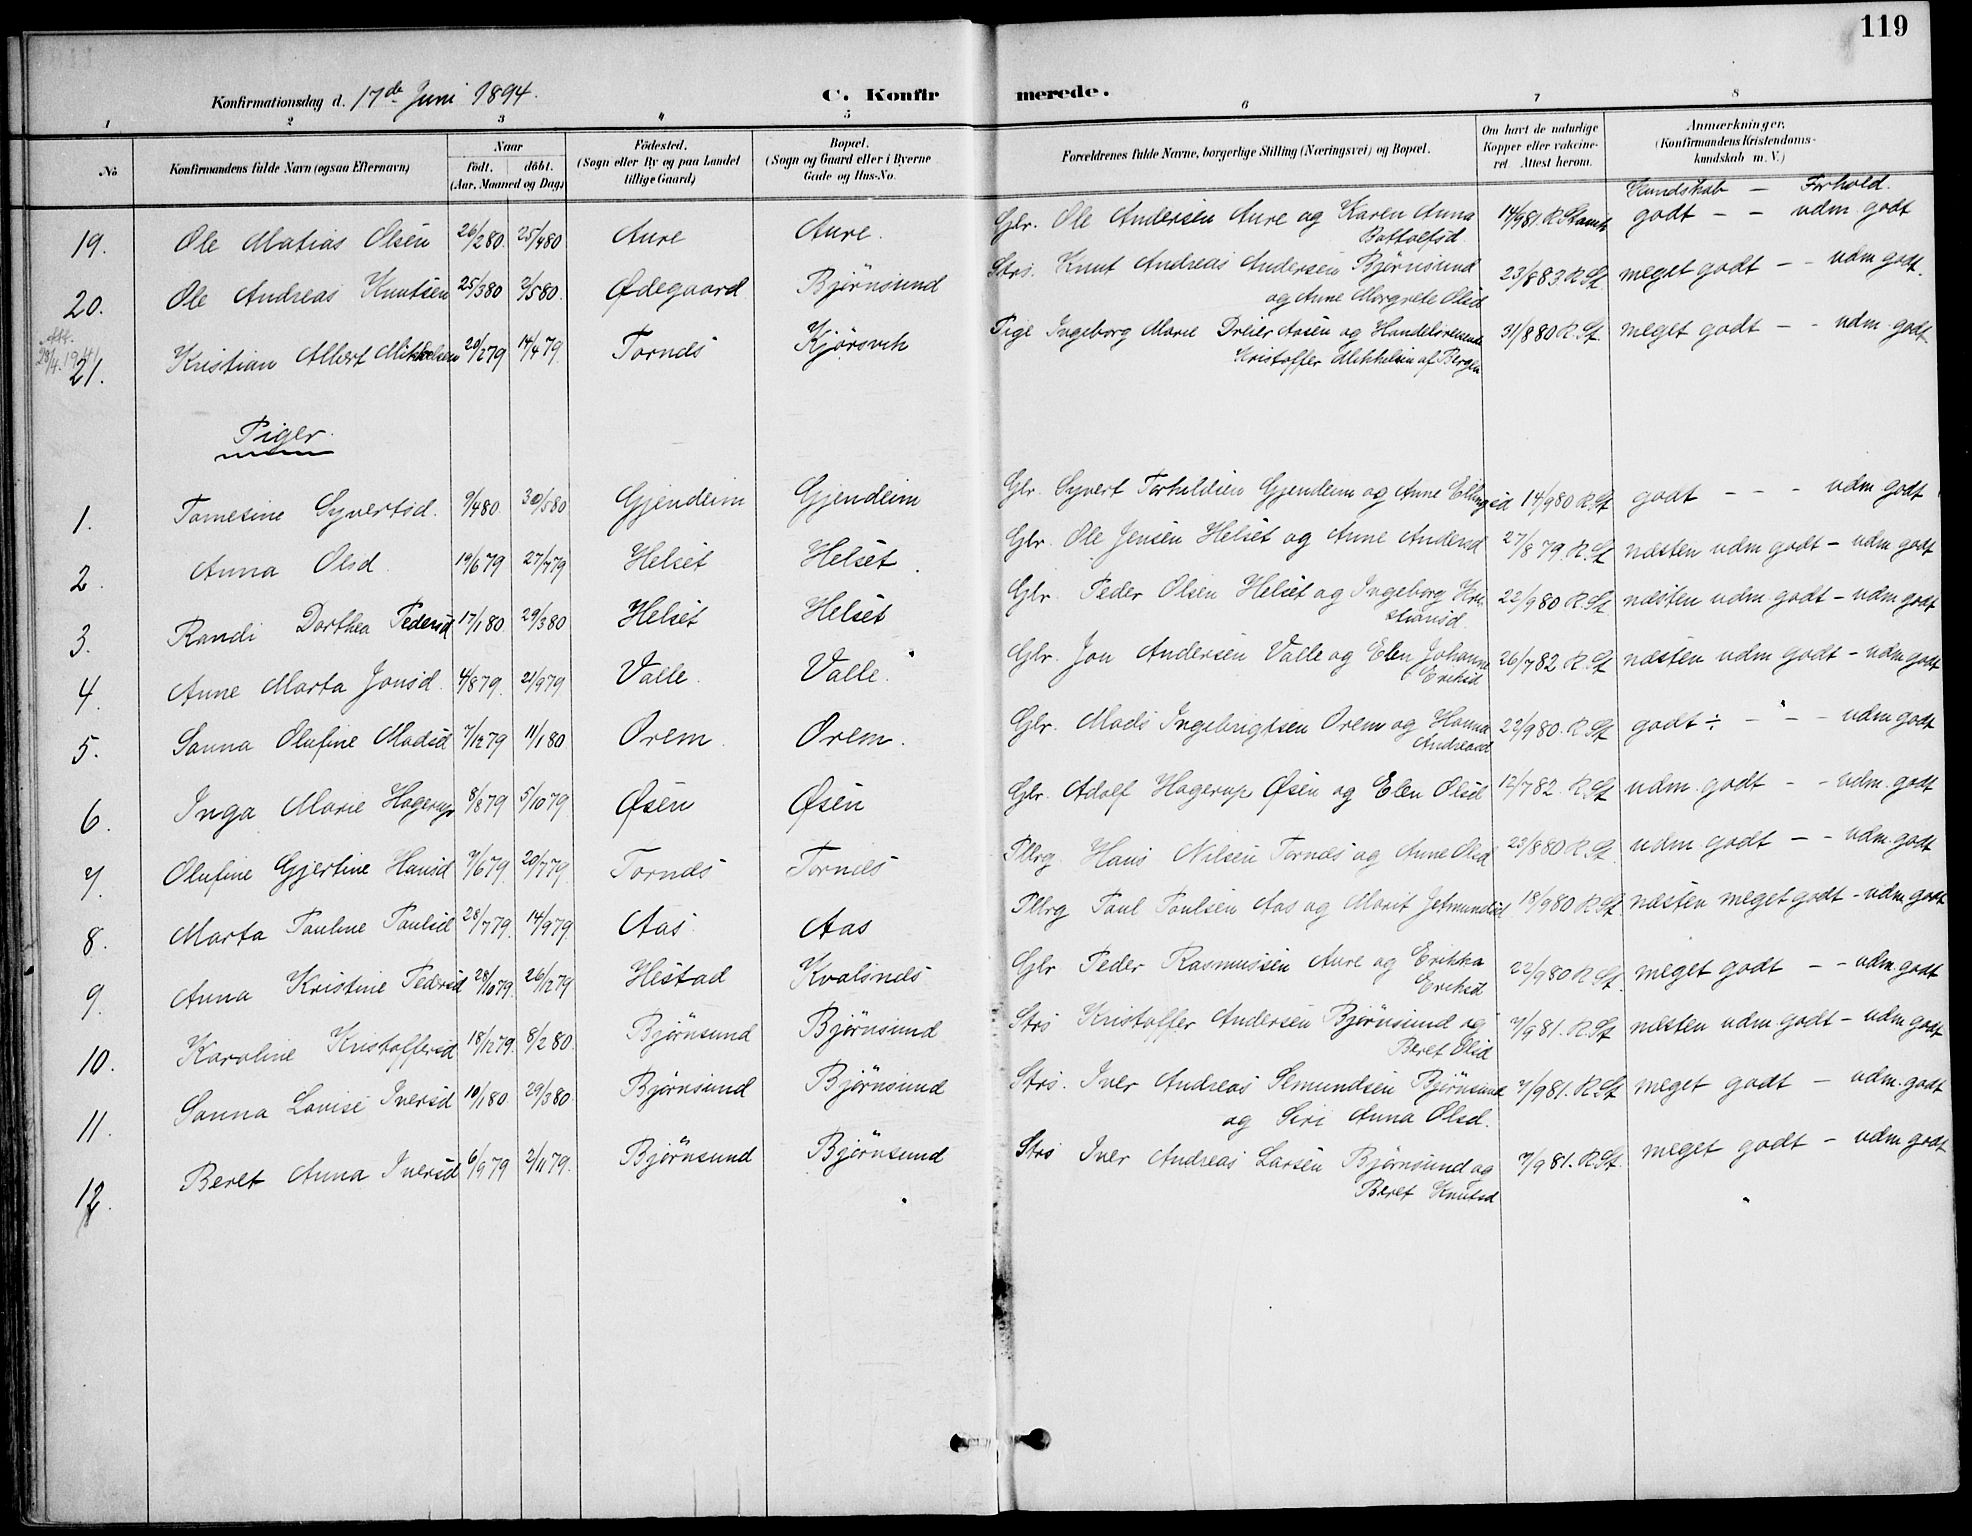 119
Konfirmationsdag d. 17de Juni 1894.
C. Konfirmerede.
1 2 3 4 5 6 7 8
No
Konfirmandens fulde Navn (ogsaa Efternavn)
Naar
födt. döbt.
(Aar, Maaned og Dag)
Födested.
(Sogn eller By og paa Landet
tillige Gaard)
Bopæl.
(Sogn og Gaard eller i Byerne
Gade og Hus-No.
Forældrenes fulde Navne, borgerlige Stilling (Næringsvei) og Bopæl.
Om havt de naturlige
Kopper eller vakcine-
ret. Attest herom.
Anmærkninger,
(Konfirmandens Kristendoms-
kundskab m. V.)
Kundskab — Forhold.
19. Ole Matias Olsen 26/2 80 25/4 80 Aure Aure. Glr. Ole Andersen Aure og Karen Anna 14/9 81. R. Stamb godt - - udm godt
Bottolfsd.
20. Ole Andreas Knutsen 25/3 80 2/5 80. Ødegaard Bjørnsund Strs. Knut Andreas Andersen Bjørnsund 23/8 83 R. St. meget godt - - udm godt.
og Anne Margrete Olsd
Att.
29/4 1941
21. Kristian Albert Mikkelsen 20/2 79 14/4 79 Tornes Kjørsvik Pige Ingeborg Marie Dreier Aasen og Handelsreisende 31/8 80 R. St. meget godt - - udm. godt
Kristoffer Mikkelsen af Bergen
Piger.
1. Tomesine Syvertsd. 9/4 80 30/5 80 Gjendeim Gjendeim Glr. Syvert Torkildsen Gjendeim og Anne Ellingsd 14/9 80 R. St. godt - - - udm godt
2. Anna Olsd 19/6 79 27/7 79 Helset Helset. Glr. Ole Jensen Helset og Anne Andersd 27/8 79. R. St næsten udm godt - udm. godt
3. Randi Dorthea Pedersd 17/1 80 29/3 80 Helset Helset Glr. Peder Olsen Helset og Ingeborg Kri- 22/9 80 R. St. næsten udm godt - udm godt
stiansd
4. Anne Marta Jonsd. 4/8 79. 21/9 79 Valle. Valle. Glr. Jon Andersen Valle og Elen Johanne 26/7 82. R. St næsten udm godt - udm godt
Eriksd
5. Sanna Olufine Madsd 7/12 79 11/1 80 Orem Orem. Glr. Mads Ingebrigtsen Orem og Hanna 22/9 80. R. St. godt ÷ - - - udm godt
Andreasd
6. Inga Marie Hagerup 8/8 79 5/10 79 Øsen Øsen Glr. Adolf Hagerup Øsen og Elen Olsd 12/7 82. R. St. udm. godt - - udm. godt
7. Olufine Gjertine Hansd 7/6 79. 20/7 79. Tornes Tornes Pllrg. Hans Nilsen Tornes og Anne Olsd 23/8 80 R. St. udm godt - - udm. godt
8. Marta Pauline Paulsd 28/7 79. 14/9 79. Aas Aas Pllrg Paul Paulsen Aas og Marit Jetmundsd 18/9 80 R. St. næsten meget godt - udm. godt
9. Anna Kristine Pedersd 28/10 79. 26/12 79 Hestad Kvalsnes Glr Peder Rasmussen Aure og Erikka 22/9 80 R. St. meget godt - - udm. godt
Eriksd
10. Karoline Kristoffersd 18/12 79. 8/2 80. Bjørnsund Bjørnsund Strs Kristoffer Andersen Bjørnsund og 7/9 81. R. St næsten udm. godt - udm. godt
Beret Olsd
11. Sanna Lovise Iversd 10/1 80 29/3 80. Bjørnsund Bjørnsund Strs. Iver Andreas Semundsen Bjørnsund 7/9 81. R. St meget godt - udm. godt
og Siri Anna Olsd.
12. Beret Anna Iversd 6/9 79 2/11 79. Bjørnsund Bjørnsund Strs Iver Andreas Larsen Bjørnsund og 7/9 81. R. St. meget godt - udm godt
Beret Knutsd